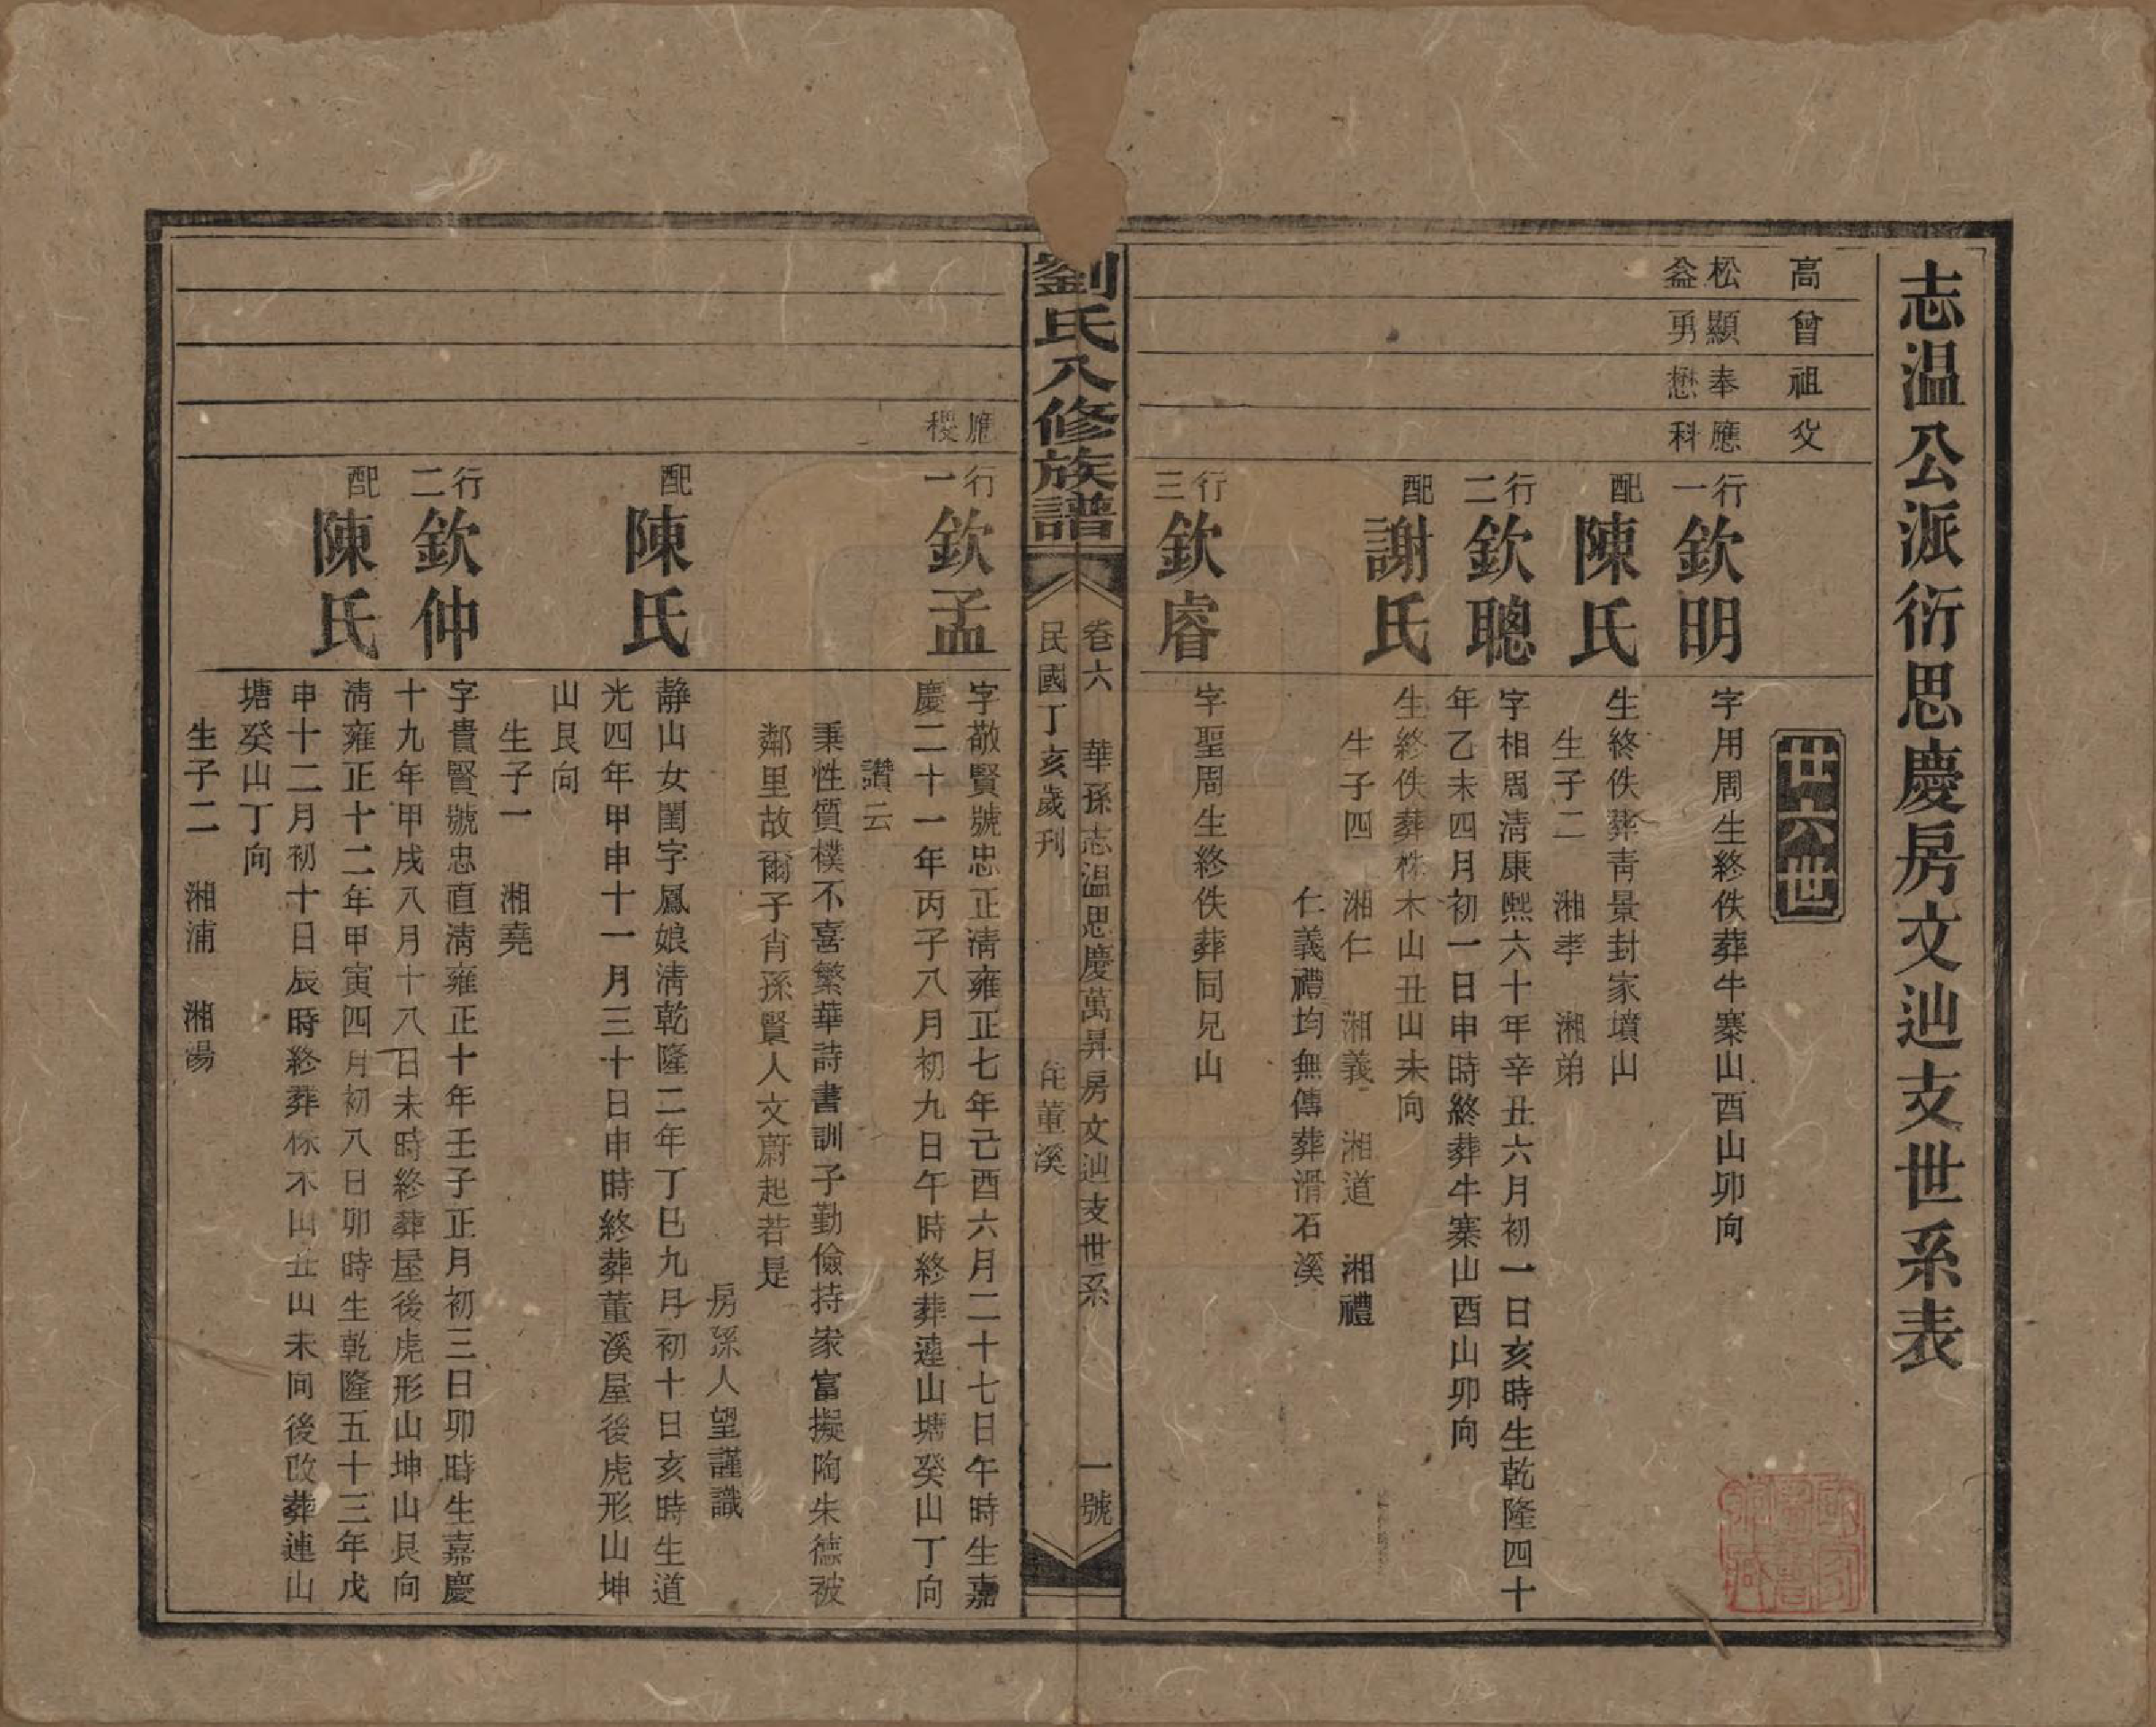 志温公派衍思慶房文辿支世系表
高 曾 祖 父
廿六世
松 顯 奉 應
益 勇 懋 科
行一 欽明
字用周生終佚葬牛寨山酉山卯向
配 陳氏
生終佚葬靑景封家墳山
生子二 湘孝 湘弟
行二 欽聰
字相周淸康熙六十年辛丑六月初一日亥時生乾隆四十
年乙未四月初一日申時終葬牛寨山酉山卯向
配 謝氏
生終佚葬株木山丑山未向
生子四 湘仁 湘義 湘道 湘禮
仁義禮均無傳葬滑石溪
行三 欽睿
字聖周生終佚葬同兄山
劉氏八修族譜
卷六 華孫志温思慶萬昇房文辿支世系 一號
民國丁亥歲刊 董溪
應
稷
行一 欽孟
字敬賢號忠正淸雍正七年己酉六月二十七日午時生嘉
慶二十一年丙子八月初九日午時終葬連山塘癸山丁向
讚云
秉性質樸不喜繁華詩書訓子勤儉持家富擬陶朱德被
鄰里故爾子肖孫賢人文蔚起若是
房孫人望謹識
配 陳氏
静山女閨字鳳娘淸乾隆二年丁巳九月初十日亥時生道
光四年甲申十一月三十日申時終葬董溪屋後虎形山坤
山艮向
生子一 湘堯
行二 欽仲
字貴賢號忠直淸雍正十年壬子正月初三日卯時生嘉慶
十九年甲戌八月十八日未時終葬屋後虎形山坤山艮向
配 陳氏
淸雍正十二年甲寅四月初八日卯時生乾隆五十三年戊
申十二月初十日辰時終葬株木山丑山未向後改葬連山
塘癸山丁向
生子二 湘浦 湘湯